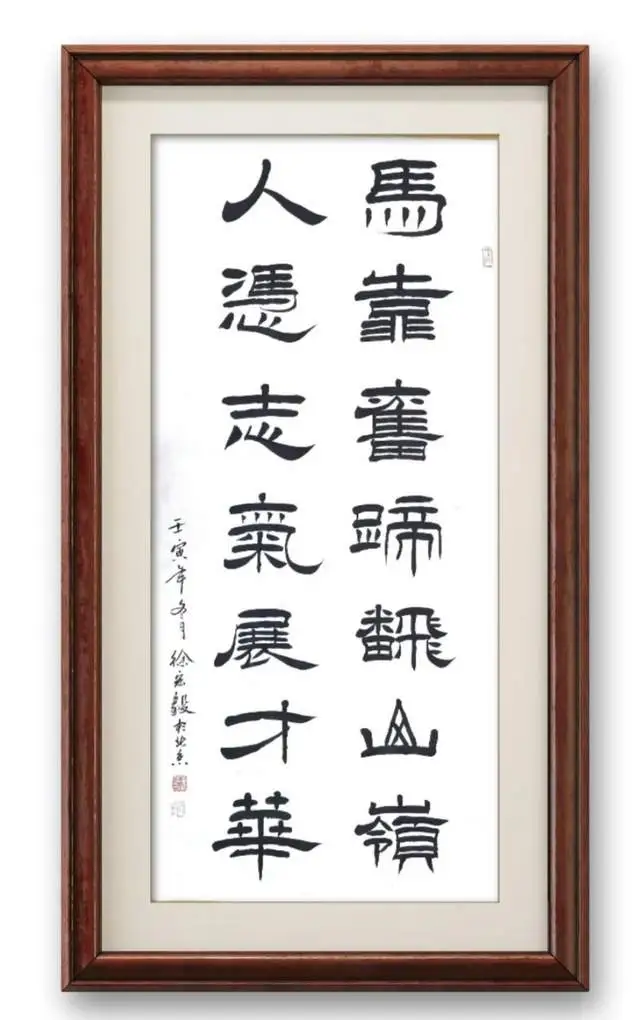 馬靠奮蹄飜山嶺
人憑志氣展才華
壬寅年冬月徐宏毅於北京